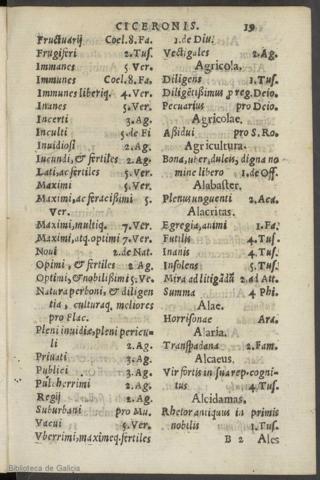 CICERONIS. 19
Fructuarij Coel.8.Fa.
Frugiferi 2.Tuſ.
Immanes 5.Ver.
Immunes Coel.8.Fa.
Immunes liberiq. 4.Ver.
Inanes 5.Ver.
Incerti 3.Ag.
Inculti 5.de Fi
Inuidioſi 2.Ag.
Iucundi, & fertiles 2.Ag.
Lati, ac fertiles 5.Ver.
Maximi 5.Ver.
Maximi, ac feraciſsimi 5.
Ver.
Maximi, multiq. 7.Ver.
Maximi, atq. optimi 7.Ver.
Noui 2.de Nat.
Opimi, & fertiles 2.Ag.
Optimi, & nobiliſsimi 5.Ve.
Natura perboni, & diligen
tia, culturaq. meliores
pro Flac.
Pleni inuidia, pleni pericu-
li 2.Ag.
Priuati 3.Ag.
Publici 3.Ag.
Pulcherrimi 2.Ag.
Regij 2.Ag.
Suburbani pro Mu.
Vacui 5.Ver.
Vberrimi, maximeq. fertiles
1.de Diu.
Vectigales 2.Ag.
Agricola.
Diligens 1.Tuſ.
Diligētiſsimus pro reg. Deio.
Pecuarius pro Deio.
Agricolae.
Aſsidui pro S.Ro.
Agricultura.
Bona, uber, dulcis, digna no
mine libero 1.de Off.
Alabaſter.
Plenus unguenti 2.Aca.
Alacritas.
Egregia, animi 1.Fa.
Futilis 4.Tuſ.
Inanis 4.Tuſ.
Inſolens 5.Tuſ.
Mira ad litigādū 2.ad Att.
Summa 4 Phi.
Alae.
Horriſonae Ara.
Alaria.
Tranſpadana 2.Fam.
Alcaeus.
Vir fortis in ſua rep. cogni-
tus 4.Tuſ.
Alcidamas.
Rhetor antiquus in primis
nobilis 1.Tuſ.
B 2 Ales
Biblioteca de Galicia